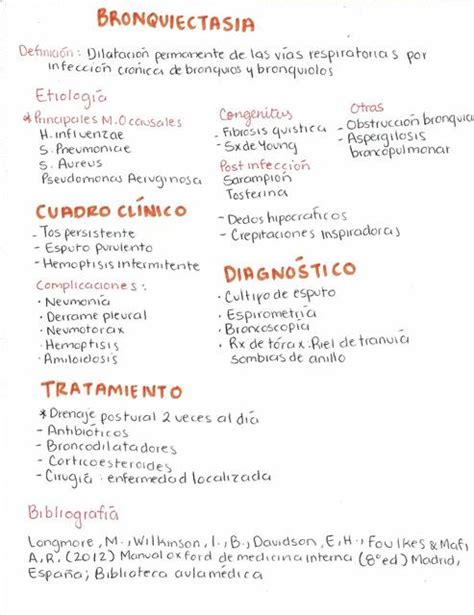 BRONQUIECTASIA
Definición: Dilatación permanente de las vías respiratorias por
infección crónica de bronquios y bronquiolos
Etiología
*Principales M.O causales
H. influenzae
S. Pneumoniae
S. Aureus
Pseudomonas Aeruginosa
Congenitus
- Fibrosis quistica
- Sx de Young
Post infección
Sarampión
Tosferina
Otras
- Obstrucción bronquia
- Aspergilosis
broncopulmonar
CUADRO CLÍNICO
- Tos persistente
- Esputo purulento
- Hemoptisis intermitente
- Dedos hipocraficos
- Crepitaciones inspiradoras
Complicaciones:
· Neumonía
· Derrame pleural
· Neumotorax
· Hemoptisis
· Amiloidosis
DIAGNÓSTICO
· Cultipo de esputo
· Espirometría
· Broncoscopia
· Rx de tórax: Riel de tranvia
sombras de anillo
TRATAMIENTO
* Drenaje postural 2 veces al día
- Antibióticos
- Broncodilatadores
- Corticoesteroides
- Cirugía: enfermedad localizada
Bibliografía
Longmore, M., Wilkinson, I., B., Davidson, E, H., Foulkes & Mafi,
A, R. (2012) Manual oxford de medicina interna (8°ed) Madrid,
España; Biblioteca aulamédica